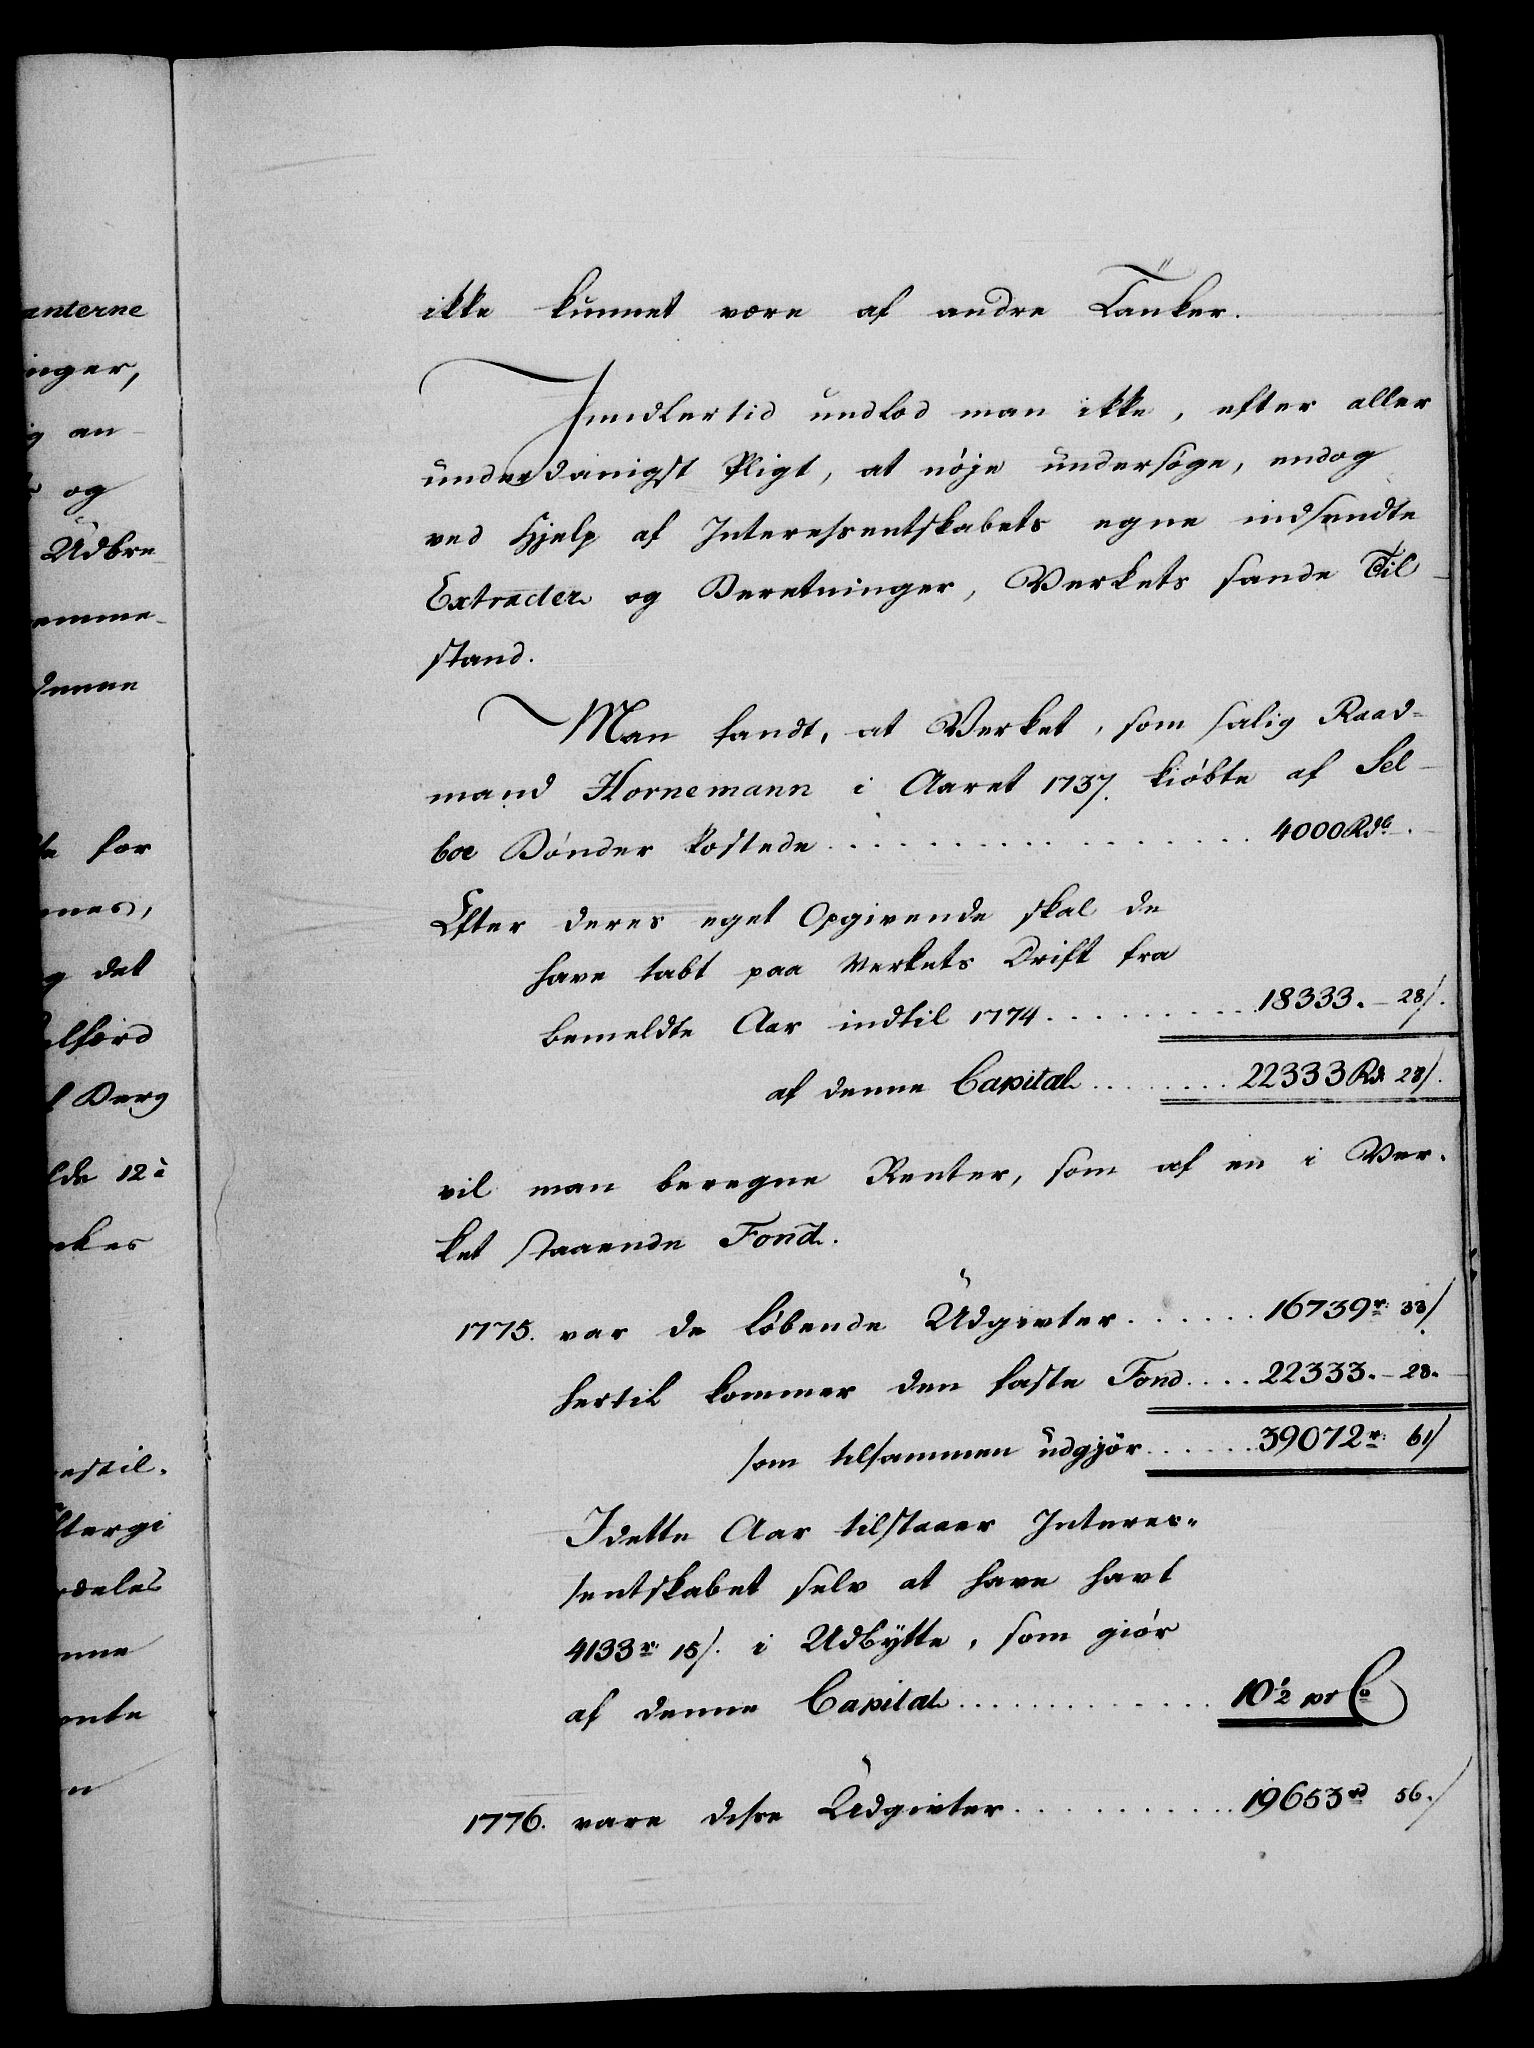 anterne
inger,
ig an
og
Udbre
emme-
denne
te for
enes,
og det
elfærd
f Berg
lde 12
estil-
ftergi
rdeles
nne
ente
ikke kunnet være af andre Tanker.
Imidlertid undlod man ikke, efter aller
underdanigst Pligt, at nöje undersöge, endog
ved Hjelp af Interessentskabets egne indsendte
Extracter og Beretninger, Verkets sande Til-
stand.
Man fandt, at Verket, som salig Raad-
mand Hornemann i Aaret 1737. kiöbte af Sel-
boe Bönder kostede . . . . . . . . . . . . . . . 4000 Rdr.
Efter deres eget Opgivende skal de
have tabt paa Verkets Drift fra
bemeldte Aar indtil 1774 . . . . . . . . . 18333. - 28 s.
af denne Capital . . . . . . . . 22333 Rd 28 s.
vil man beregne Renter, som af en i Ver-
ket staaende Fond.
1775. var de löbende Udgivter . . . . . . 16739 r: 33 s.
hertil kommer den faste Fond . . . . 22333. - 28.
som tilsammen udgjör . . . . . . 39072 r: 61 s
I dette Aar tilstaaer Interes-
sentskabet selv at have havt
4133 r: 15 s. i Udbytte, som giör
af denne Capital . . . . . . . . . . . . 10 1/2 pr Co
1776. vare disse Udgivter . . . . . . . . . . 19653 rd 56. s